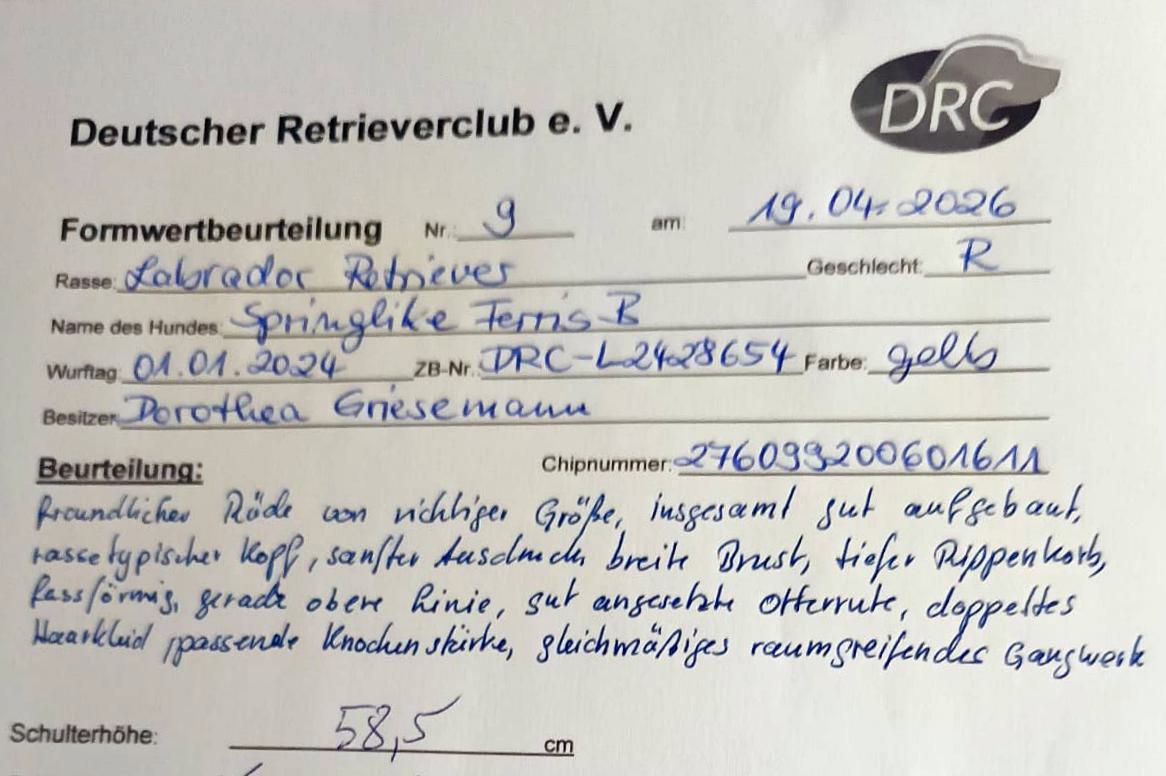 DRC
Deutscher Retrieverclub e. V.
Formwertbeurteilung Nr. 9 am: 19.04.2026
Rasse: Labrador Retriever Geschlecht: R
Name des Hundes: Springlike Ferris B
Wurftag: 01.01.2024 ZB-Nr. DRC-L2428654 Farbe: gelb
Besitzer: Dorothea Griesemann
Beurteilung: Chipnummer: 276099200601611
freundlicher Rüde von richtiger Größe, insgesamt gut aufgebaut,
rassetypischer Kopf, sanfter Ausdruck, breite Brust, tiefer Rippenkorb,
fassförmig, gerade obere Linie, gut angesetzte Otterrute, doppeltes
Haarkleid, passende Knochenstärke, gleichmäßiges raumgreifendes Gangwerk
Schulterhöhe: 58,5 cm